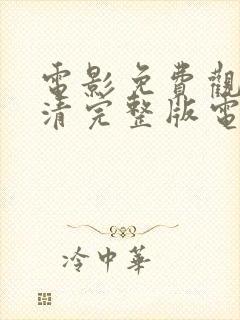 電影免費觀
清完整版電
冷中華